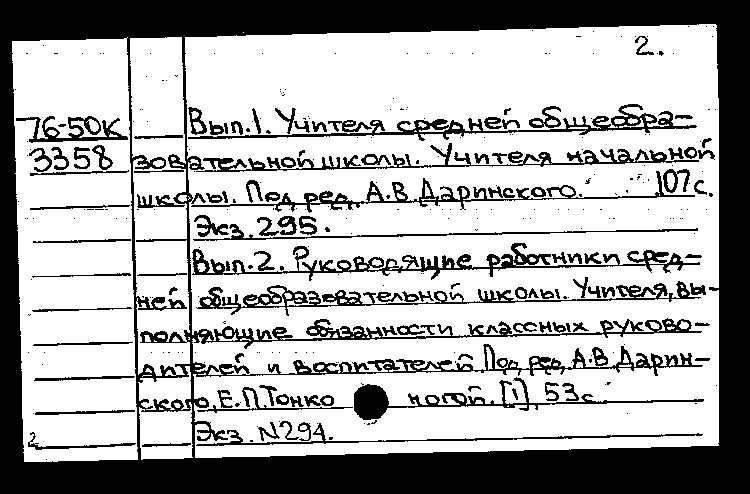 2.
76-50К Вып.1. Учителя средней общеобра-
3358 зовательной школы. Учителя начальной
школы. Под ред. А.В. Даринского. 107с.
Экз. 295.
Вып.2. Руководящие работники сред-
ней общеобразовательной школы. Учителя, вы-
полняющие обязанности классных руково-
дителей и воспитателей. Под ред. А.В. Дарин-
ского, Е.П. Тонконогой. [1], 53с.
Экз. N294.
2